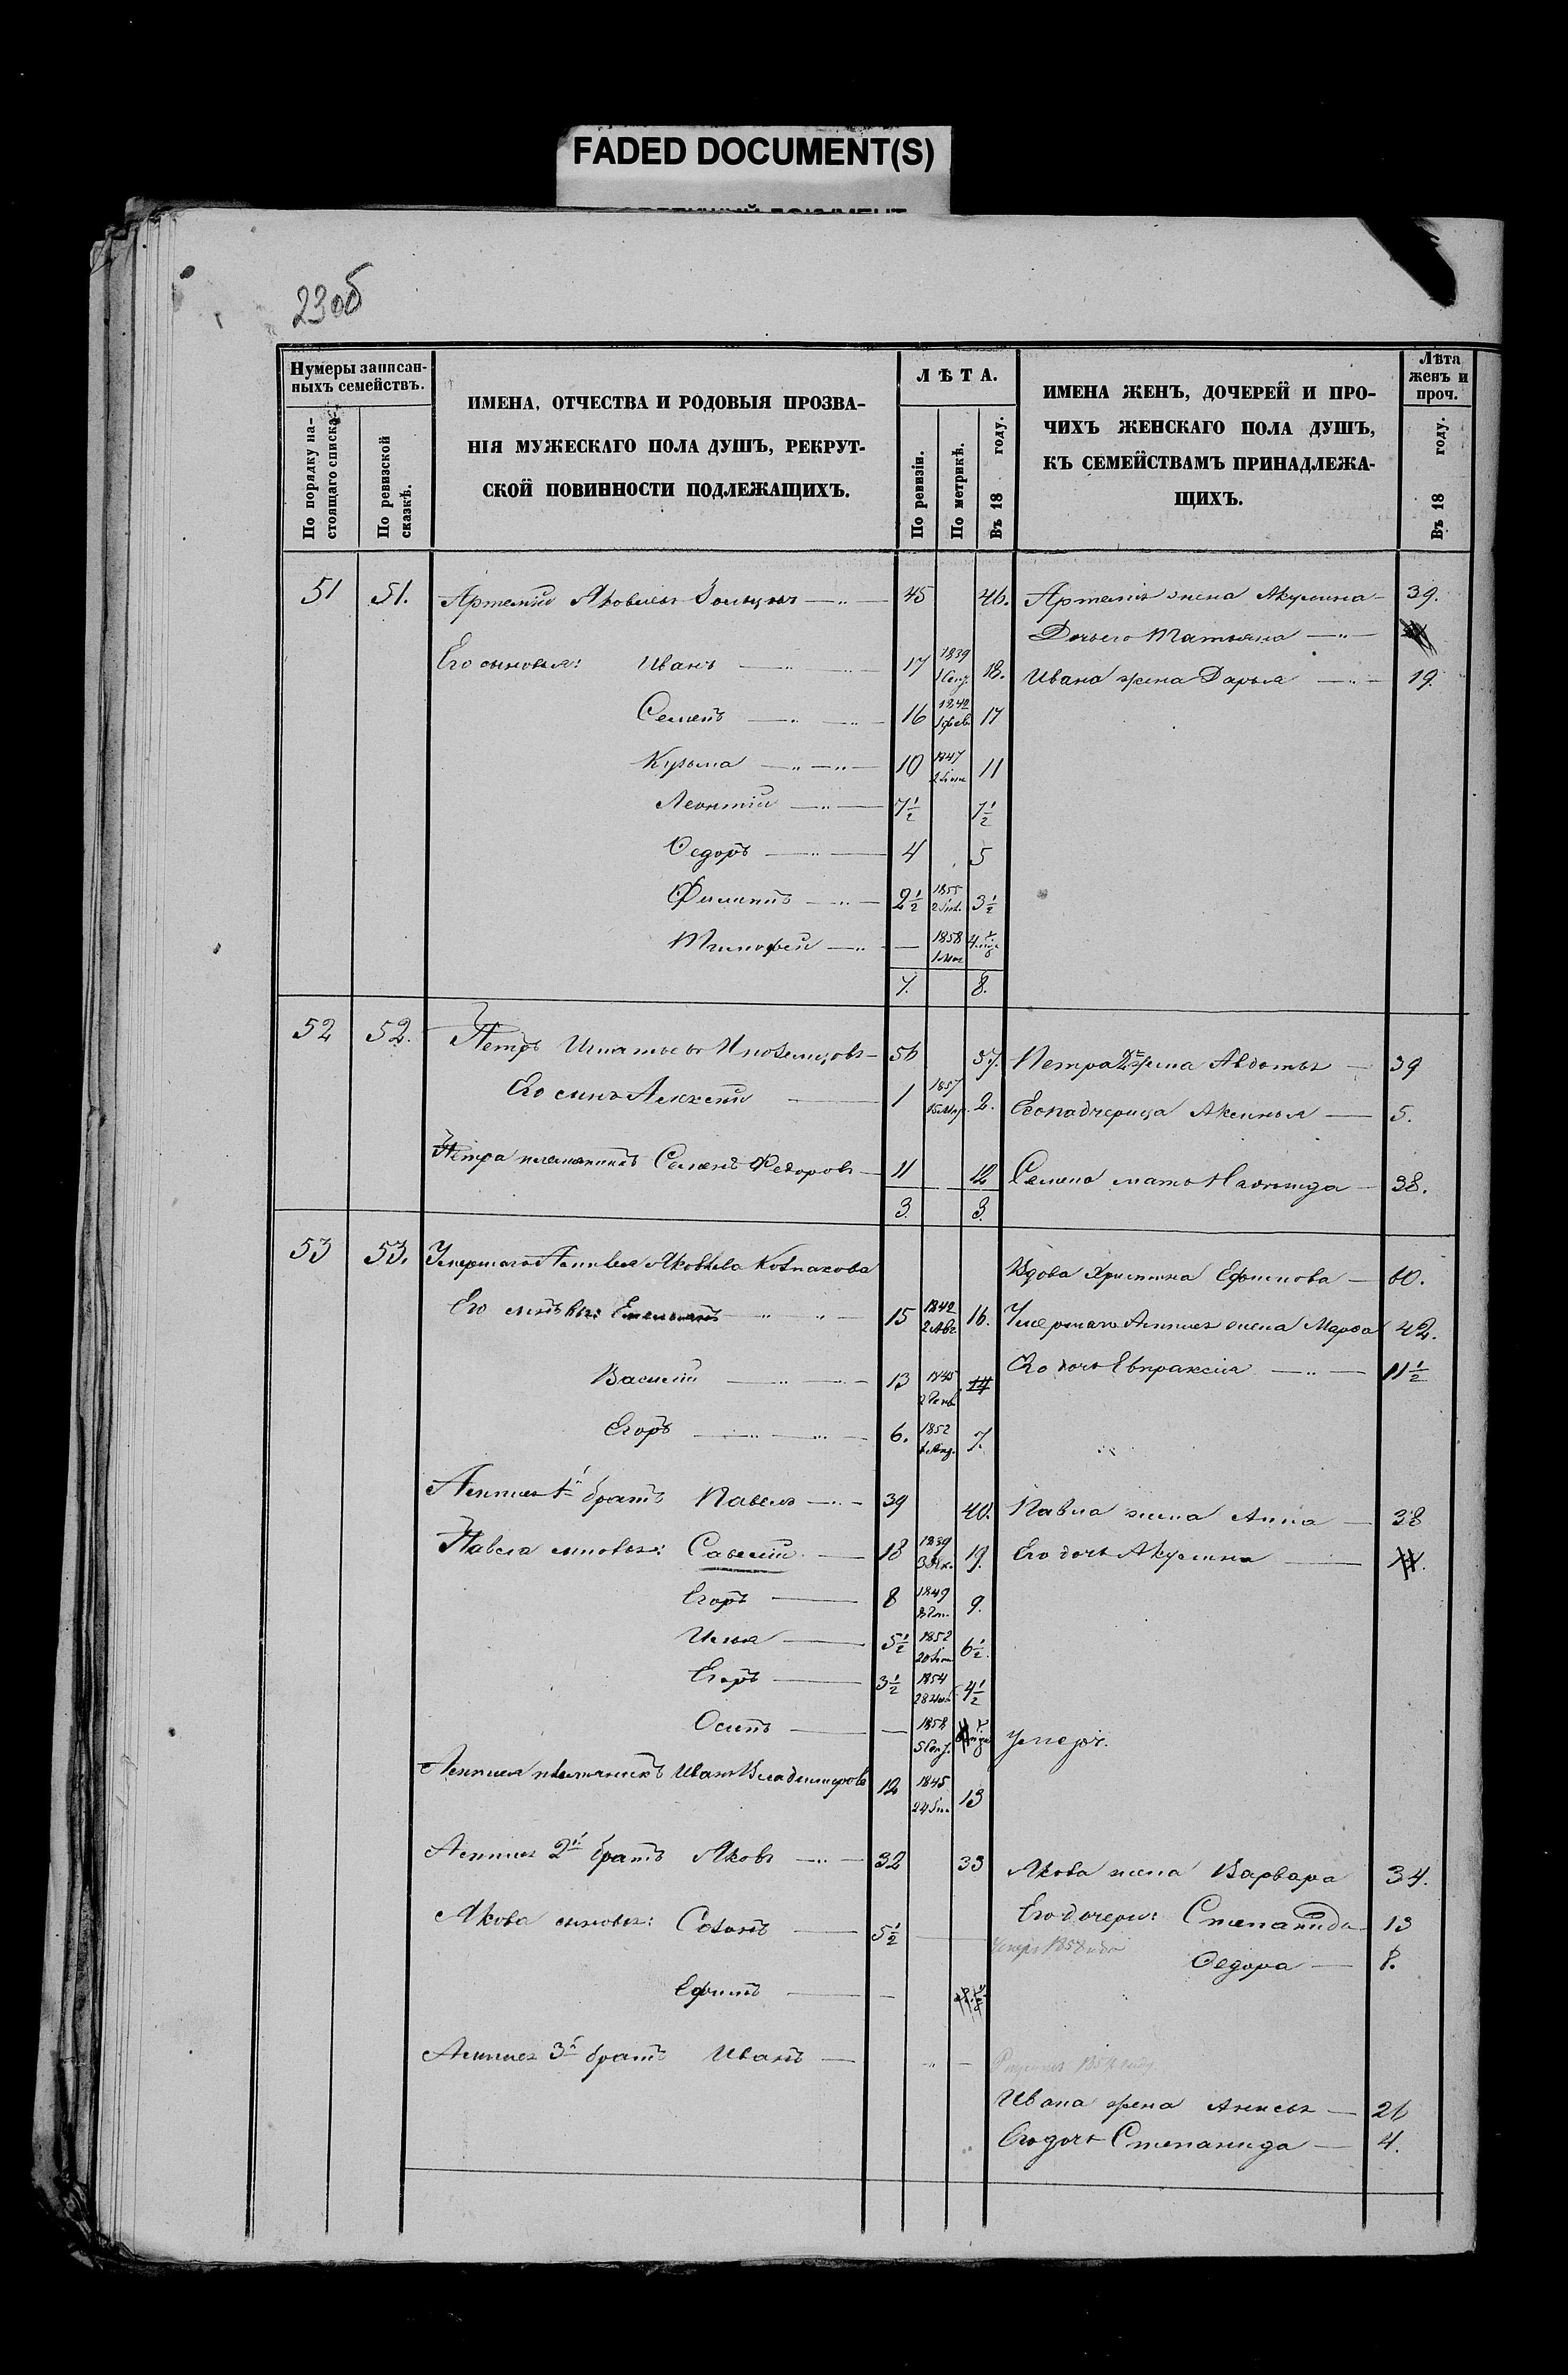 FADED DOCUMENT(S)
23об
Нумеры записан-
ныхъ семействъ.
По порядку на-
стоящаго списка.
По ревизской
сказкѣ.
ИМЕНА, ОТЧЕСТВА И РОДОВЫЯ ПРОЗВА-
НІЯ МУЖЕСКАГО ПОЛА ДУШЪ, РЕКРУТ-
СКОЙ ПОВИННОСТИ ПОДЛЕЖАЩИХЪ.
ЛѢТА.
По ревизіи.
По метрикѣ.
Въ 18 году.
ИМЕНА ЖЕНЪ, ДОЧЕРЕЙ И ПРО-
ЧИХЪ ЖЕНСКАГО ПОЛА ДУШЪ,
КЪ СЕМЕЙСТВАМЪ ПРИНАДЛЕЖА-
ЩИХЪ.
Лѣта
женъ и
проч.
Въ 18 году.
51 51. Артемій Яковлевъ 45 46. Артемія жена Акулина 39.
Дочь его Татьяна
Его сыновья: Иванъ 17 1839 18. Ивана жена Дарья 19.
Семенъ 16 1842 17
Кузьма 10 1847 11
Леонтій 7½ 7½
Ѳедоръ 4 5
Филиппъ 2½ 1855 3½
Тимофей — 1858
7. 8.
52 52. Петръ Игнатьевъ Иноземцовъ 56 57. Петра 2я жена Авдотья 39
Его сынъ Алексѣй 1 1857 2. Его падчерица Аксинья 5.
Петра племянникъ Семенъ Ѳедоровъ 11 12 Семена мать 38.
3. 3.
53 53. Умершаго Яковлева
Вдова Христина Ефимова 60.
Его Емельянъ 15 1842 2 Авг. 16. Умершаго жена Марфа 42.
Василій 13 1845 Его дочь Евпраксія 11½
Егоръ 6. 1852 7.
1й братъ Павелъ 39 40. Павла жена Анна 38
Павла сыновья: Савелій 18 1839 19. Его дочь Акулина
Егоръ 8 1849 9.
Илья 5½ 1852 6½.
Егоръ 3½ 1854 4½
Осипъ — 1858 умеръ.
племянникъ Иванъ Владимеровъ 12 1845 13
2й братъ Яковъ 32 33 Якова жена Варвара 34.
Якова сыновья: 5½ Его дочери: Степанида 13
Ѳедора 8.
Ефимъ —
3й братъ Иванъ
Ивана жена 26
Его дочь Степанида 4.